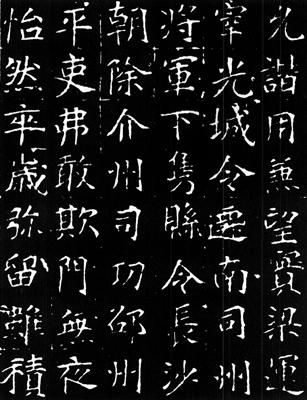 允諧用兼望賢梁運
宰光城令遷南司州
將軍下雋縣令長沙
朝除介州司功邵州
平吏弗敢欺門無夜
怡然卒歲弥留難積